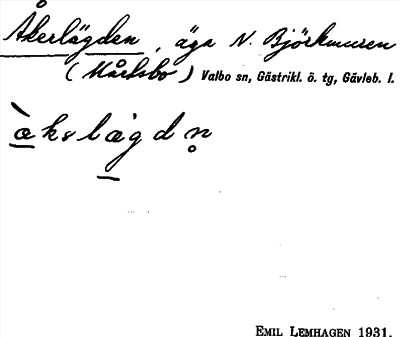 Åkerlägden, äga N. Björkmuren
(Mårtsbo) Valbo sn, Gästrikl. ö. tg, Gävleb. l.
æ̀kslægdn̥
EMIL LEMHAGEN 1931.